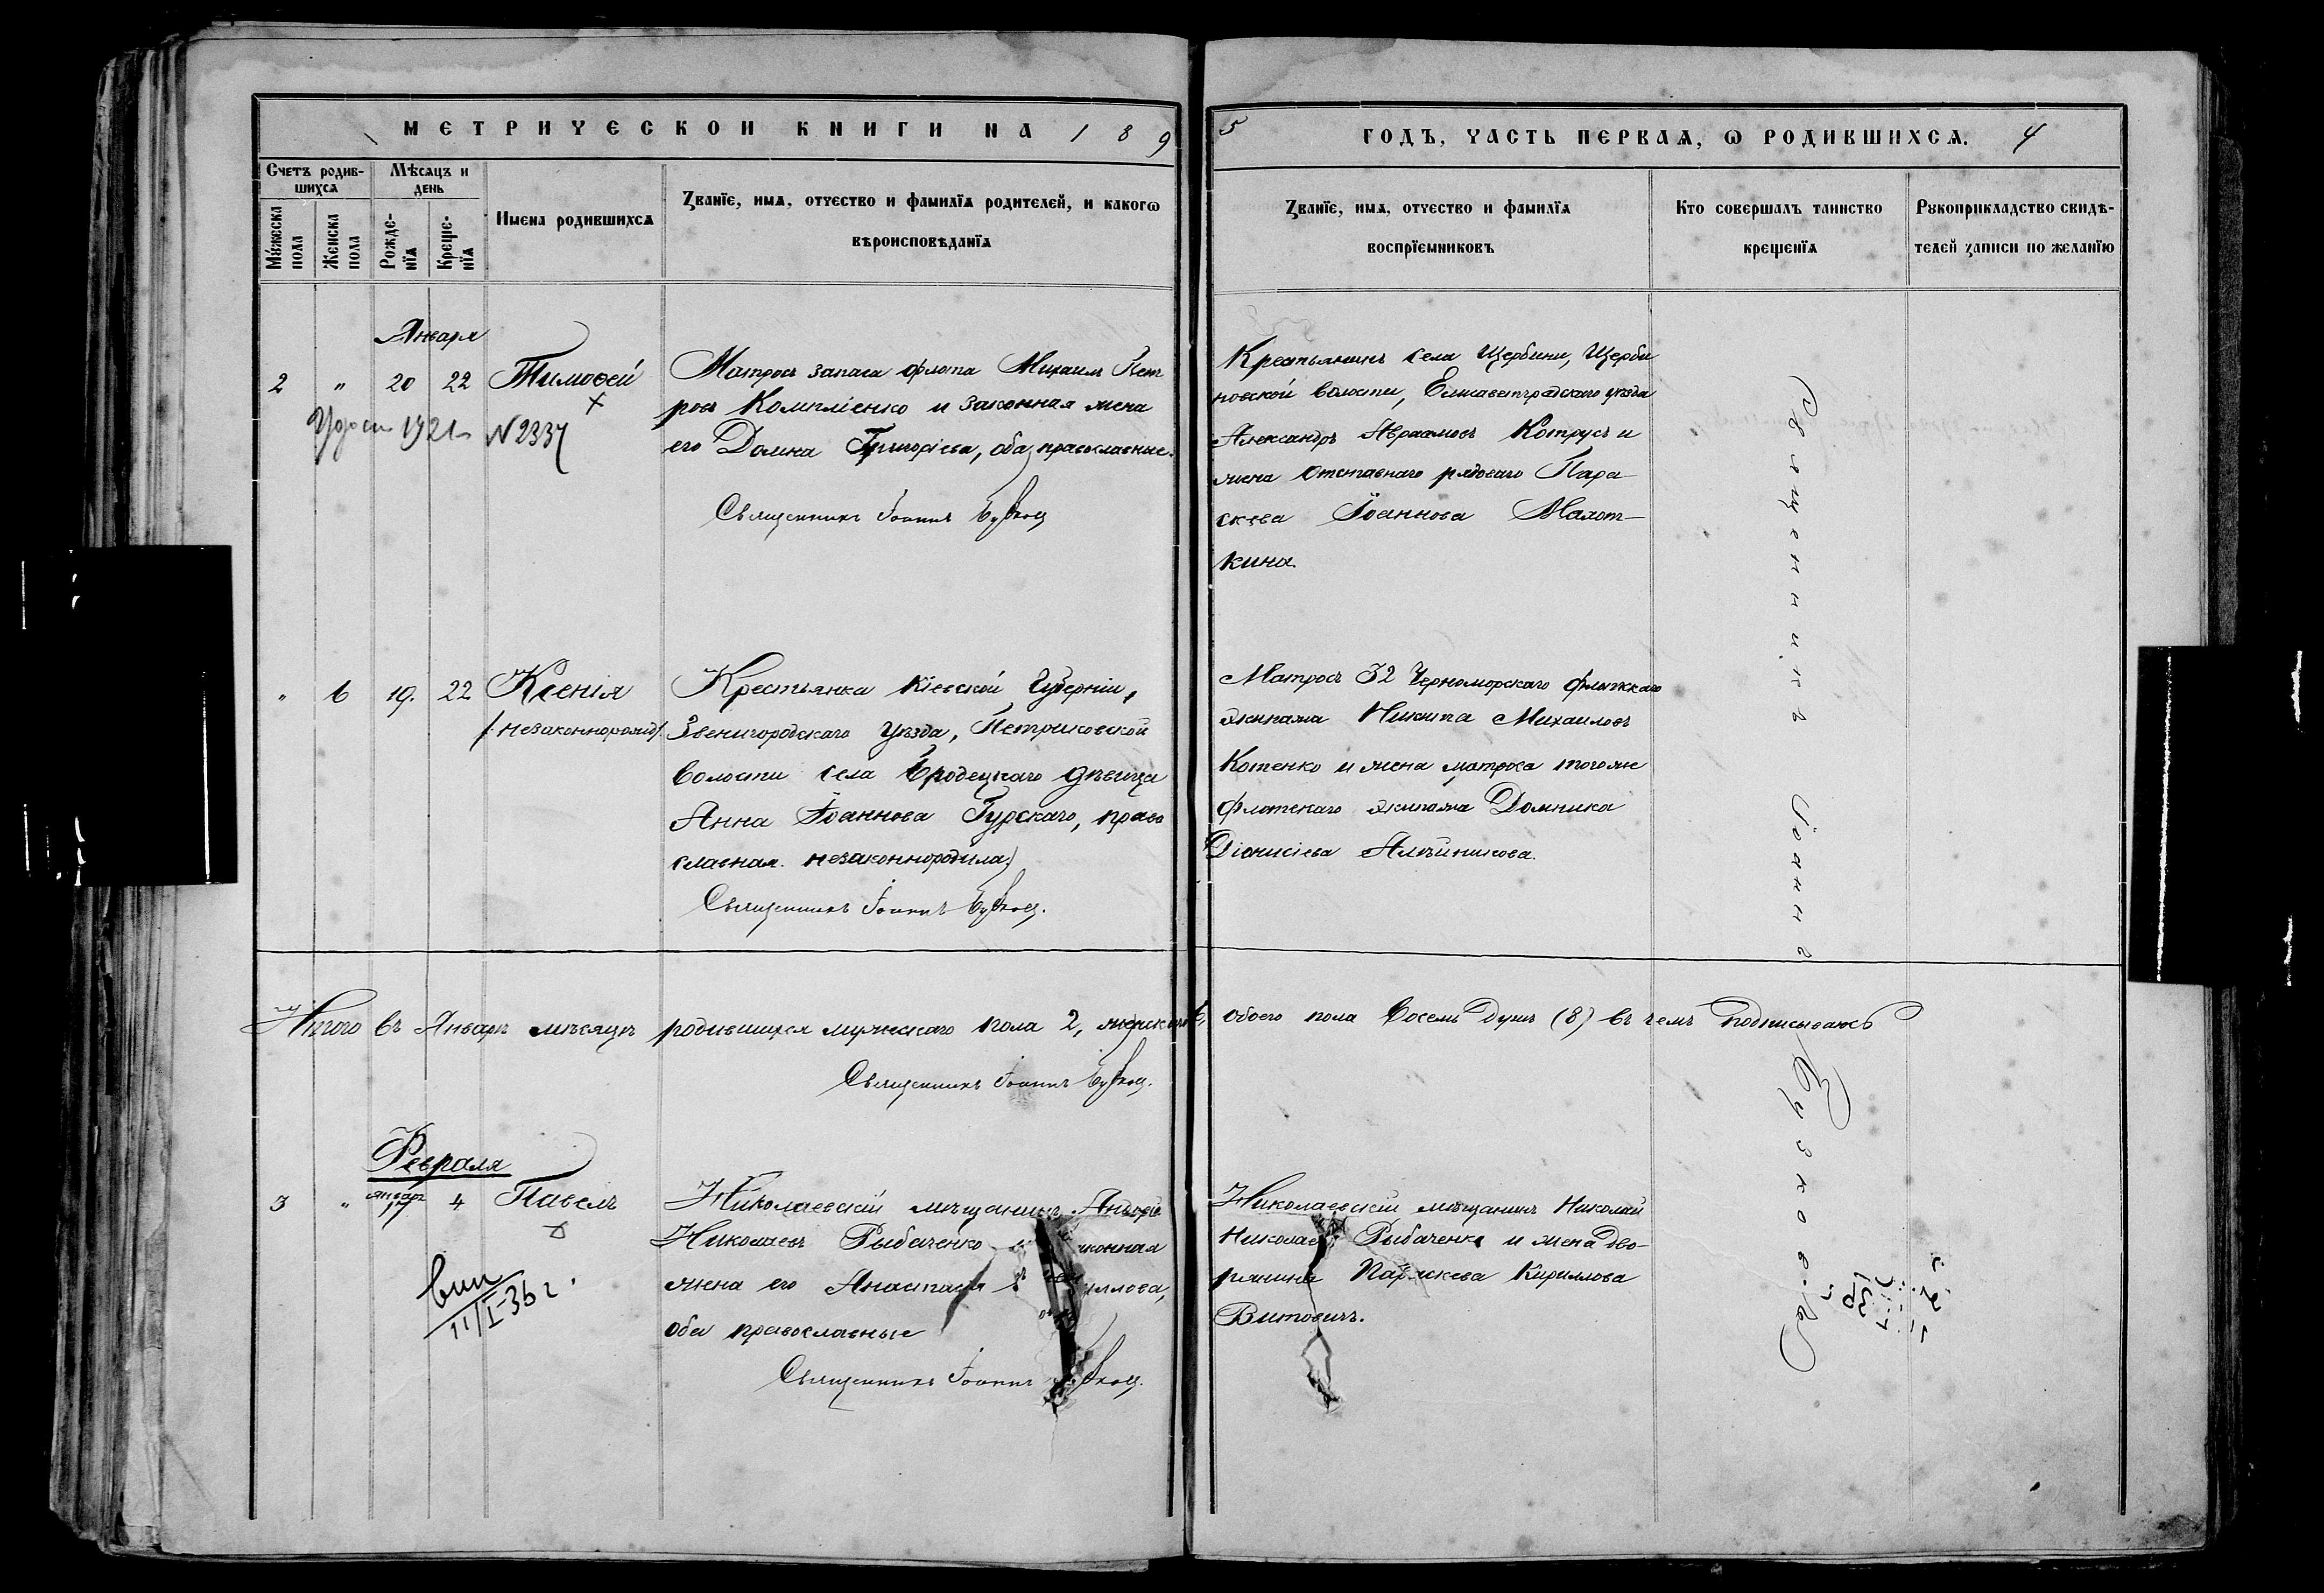 МЕТРИЧЕСКОЙ КНИГИ НА 189
5 ГОДЪ, ЧАСТЬ ПЕРВАѦ, Ѡ РОДИВШИХСѦ. 4
Счетъ родив-
шихсѧ
Мѣсѧцъ и
день
Мꙋжеска
пола
Женска
пола
Рожде-
нїѧ
Креще-
нїѧ
Имена родившихсѧ
Званїе, имѧ, отчество и фамилїѧ родителей, и какогѡ
вѣроисповѣданїѧ
Званїе, имѧ, отчество и фамилїѧ
воспрїемниковъ
Кто совершалъ таинство
крещенїѧ
Рꙋкоприкладство свидѣ-
телей записи по желанїю
Января
2 " 20 22 Тимоѳей
1921 N 2337
Матросъ запаса флота Михаилъ Пет
ровъ и законная жена
его Домна Григорiева, оба православные.
Священникъ Iоаннъ
Крестьянинъ села Щербини, Щерби
новской волости, Елисаветградскаго уѣзда
Александръ Авраамовъ Котрусъ и
жена отставнаго рядоваго Пара
скева Iоаннова Малот-
кина.
" 6 19. 22 Ксенiя
/незаконнорожд/
Крестьянка Кiевской Губернiи,
Звенигородскаго уѣзда, Петриковской
волости села Бродецкаго дѣвица
Анна Iоаннова Гурскаго, право
славная. незаконнородила)
Священникъ Iоаннъ
Матросъ 32 Черноморскаго флотскаго
экипажа Никита Михаиловъ
Котенко и жена матроса тогоже
флотскаго экипажа Домника
Дiонисiева
Священникъ Iоаннъ
Итого въ Январѣ мѣсяцѣ родившихся мужескаго пола 2, женскаго 6, обоего пола восемь душъ (8) въ чемъ подписываюсь
Священникъ Iоаннъ
Февраля
3 " январ 17 4 Павелъ
11/I-36 г.
Николаевскiй мѣщанинъ Андрей
Николаевъ Рыбаченко
жена его Анастасiя
оба православные
Священникъ Iоаннъ
Николаевскiй мѣщанинъ Николай
Николаевъ Рыбаченко и жена дво-
рянина Параскева Кириллова
Витовичъ.